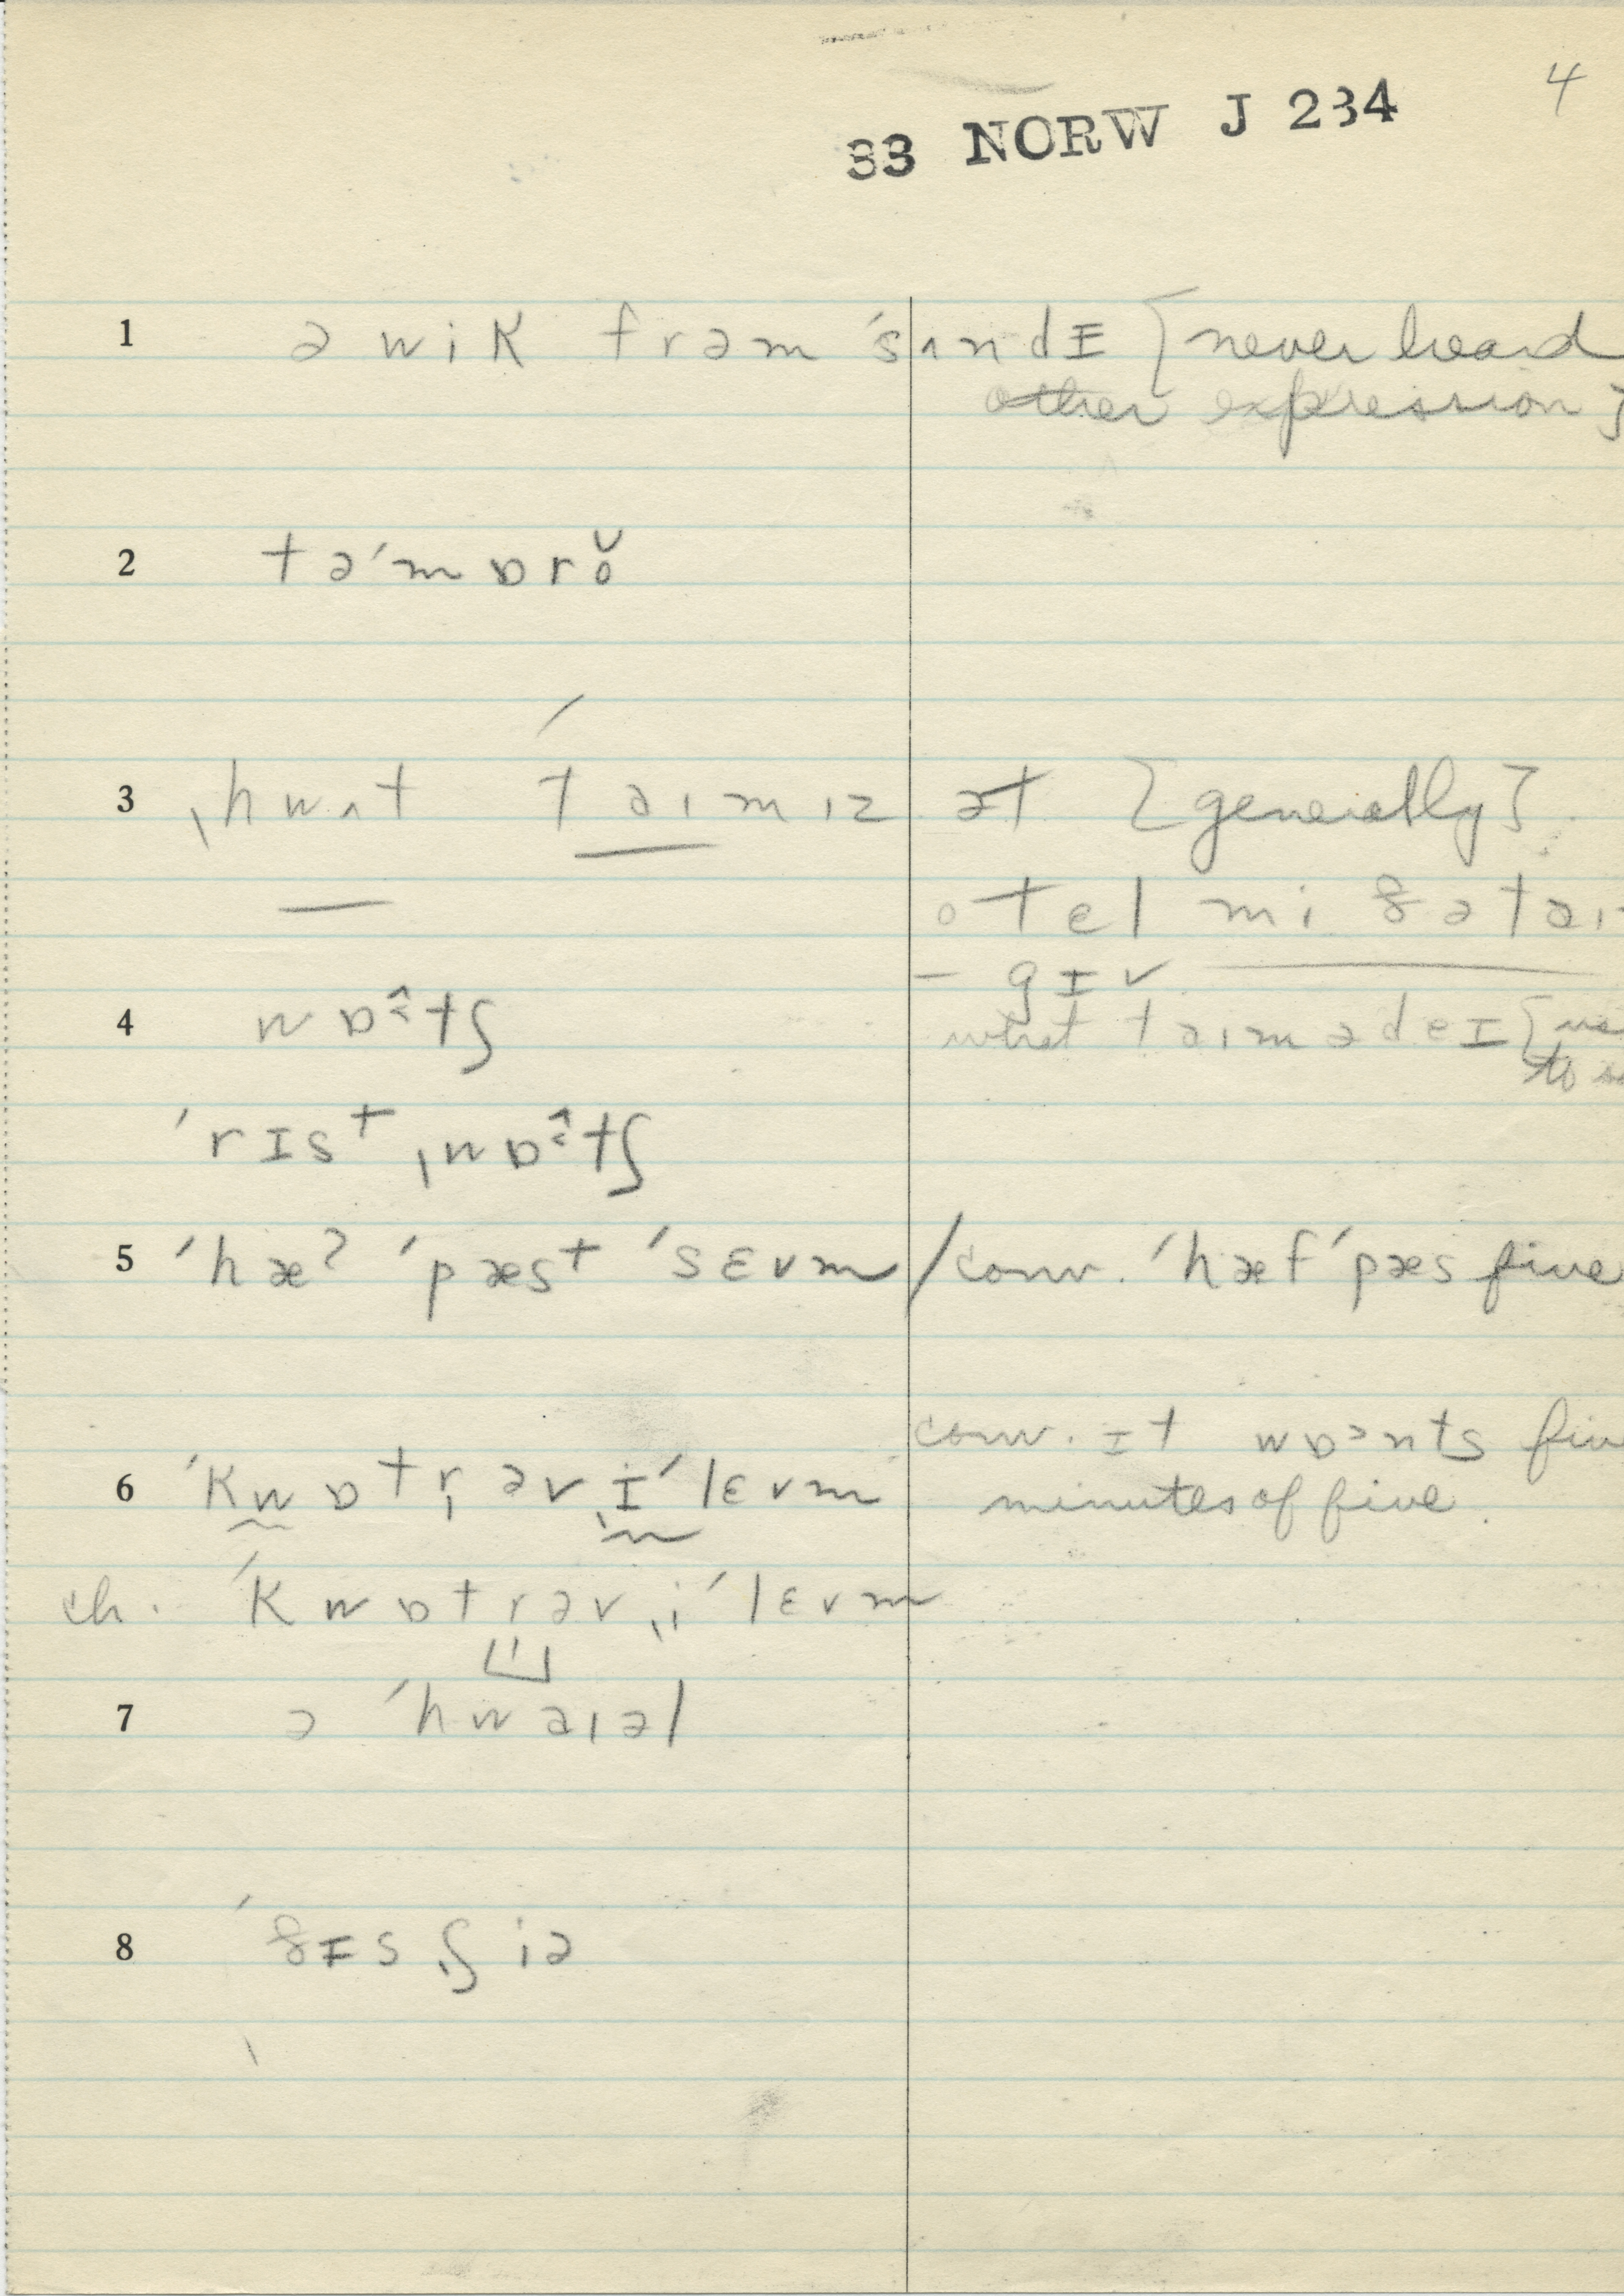 4
33 NORW J 234
1 ə wik frəm ˈsʌndɪ [never heard
other expression]
2 təˈmɒrŏ
3 ˌhwʌt ˈtaɪm ɪz ət [generally]
o tel mi ðə taɪ
– gɪv
4 wɒ̂ːtʃ what taɪm ə deɪ [
to
ˈrɪst ˌwɒ̂ːtʃ
5 ˈhæʔ ˈpæst ˈsɛvm / conv. ˈhæf ˈpæs five
conv. ɪt wɒənts
6 ˈkwɒtr̩ əv ˌɪˈlɛvm minutes of five.
ch. ˈkwɒtrəv ˌiˈlɛvm
7 ə ˈhwaɪəl
8 ˈðɪs ˌʃiə